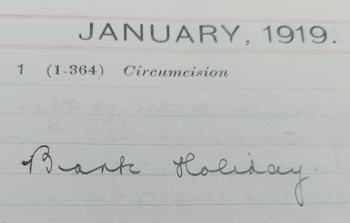 JANUARY, 1919.
1 (1-364) Circumcision
Bank Holiday.